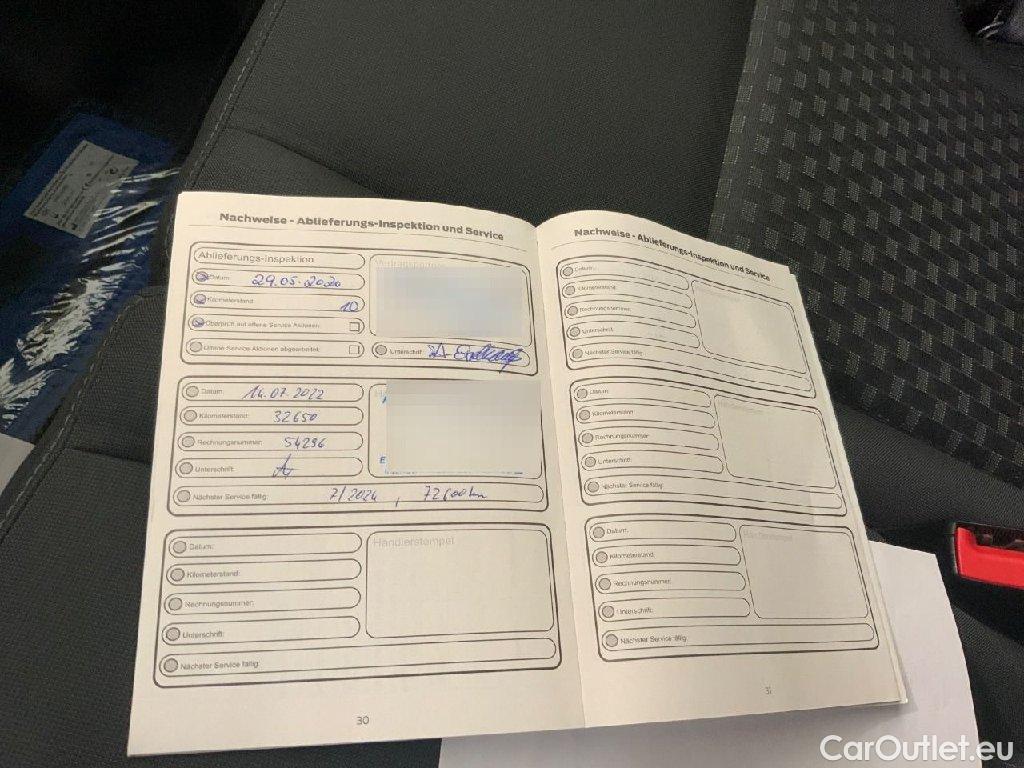 Nachweise - Ablieferungs-Inspektion und Service
Ablieferungs-Inspektion
Datum: 29.05.2020
Kilometerstand: 10
Überprüft auf offene Service Aktionen:
Offene Service Aktionen abgearbeitet:
Unterschrift:
Datum: 14.07.2022
Kilometerstand: 32650
Rechnungsnummer: 54296
Unterschrift:
Nächster Service fällig: 7/2024, 72600 km
Datum:
Kilometerstand:
Rechnungsnummer:
Unterschrift:
Nächster Service fällig:
Händlerstempel
30
Nachweise - Ablieferungs-Inspektion und Service
Datum:
Kilometerstand:
Rechnungsnummer:
Unterschrift:
Nächster Service fällig:
Datum:
Kilometerstand:
Rechnungsnummer:
Unterschrift:
Nächster Service fällig:
Datum:
Kilometerstand:
Rechnungsnummer:
Unterschrift:
Nächster Service fällig:
Händlerstempel
31
CarOutlet.eu